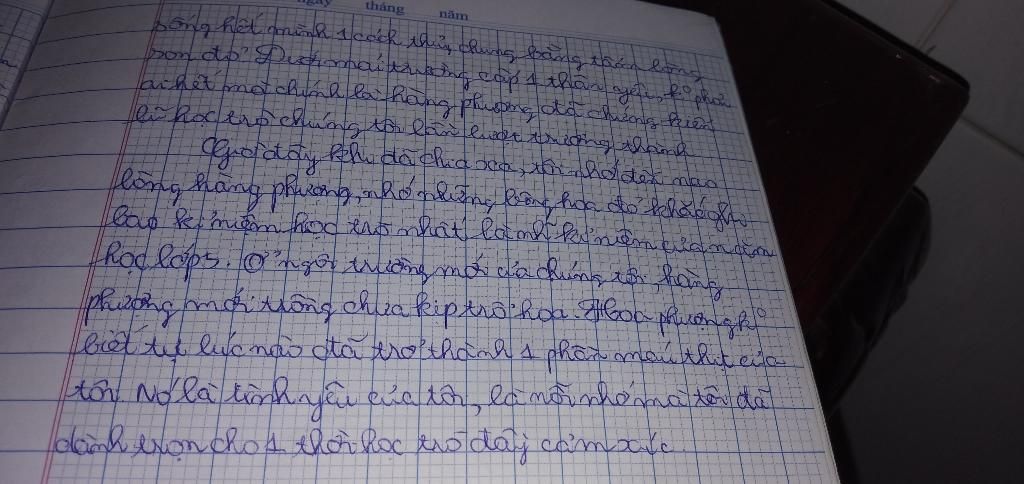 ngày tháng năm
hết mình 1 cách thủy chung bằng tấm lòng
son đỏ. Dưới mái trường cấp 1 thân yêu, ko phải
ai hết mà chính là hàng phượng đã chứng kiến
lũ học trò chúng tôi lần lượt trưởng thành
Giờ đây khi đã chia xa, tôi nhớ đến nao
lòng hàng phượng, nhớ những bông hoa đỏ thắp
bao kỉ niệm học trò nhất là những kỉ niệm của năm
học lớp 5. Ở ngôi trường mới của chúng tôi hàng
phượng mới trồng chưa kịp trổ hoa. Hoa phượng ko
biết tự lúc nào đã trở thành 1 phần máu thịt của
tôi. Nó là tình yêu của tôi, là nỗi nhớ mà tôi đã
dành trọn cho 1 thời học trò đầy cảm xúc.